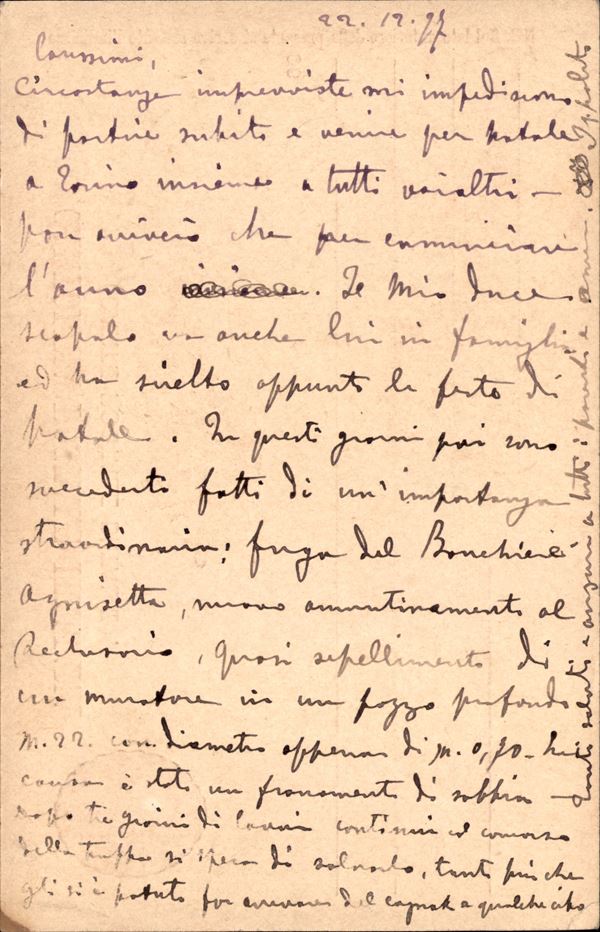 22.12.97
Carissimi,
Circostanze imprevviste mi impediscono
di partire subito e venire per Natale
a Torino insieme a tutti voialtri —
per cominciare
l'anno. Il Mio Duce
scapolo va anche lui in famiglia
ed ha scelto appunto le feste di
Natale. In questi giorni poi sono
succeduti fatti di un'importanza
straordinaria; fuga del Banchiere
nuovo ammutinamento al
Reclusorio, quasi sepellimento di
un muratore in un pozzo profondo
m. 22. con diametro appena di m. 0,70 -
causa è stato un franamento di sabbia —
dopo tre giorni di lavori continui col concorso
della truppa si spera di salvarlo, tanto più che
gli si è potuto far arrivare del cognak e qualche cibo
Tanti saluti e auguri a tutti i parenti e amici. Ippolito